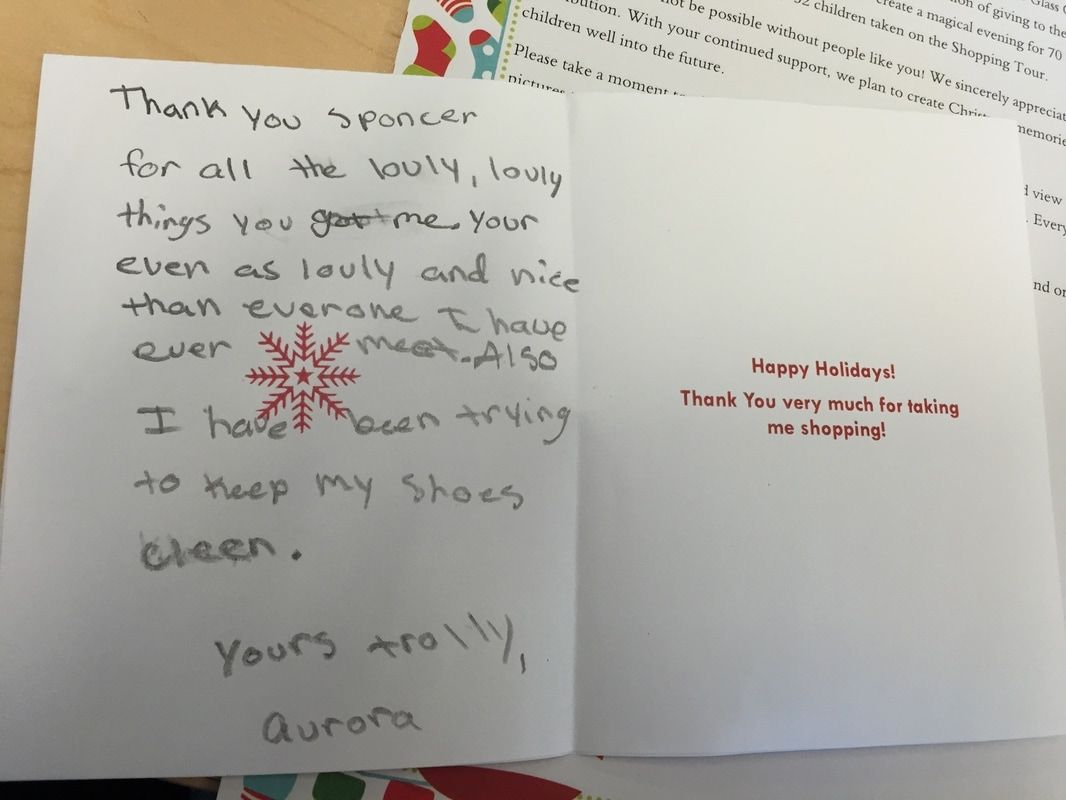 Thank you sponcer
for all the louly, louly
things you got me. Your
even as louly and nice
than everone I have
ever meet. Also
I have been trying
to keep my shoes
cleen.
Yours trolly,
aurora
Happy Holidays!
Thank You very much for taking
me shopping!
Glass
on of giving to the
create a magical evening for 70
children taken on the Shopping Tour.
not be possible without people like you! We sincerely appreciat
bution. With your continued support, we plan to create memorie
children well into the future.
Please take a moment
pictures
view
. Every
nd or